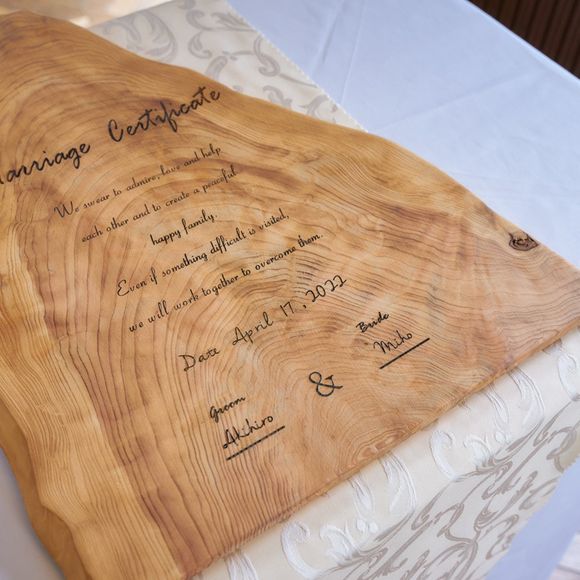 Marriage Certificate
We swear to admire, love and help
each other and to create a peaceful
happy family.
Even if something difficult is visited,
we will work together to overcome them.
Date April 17, 2022
Groom
Akihiro
&
Bride
Miho